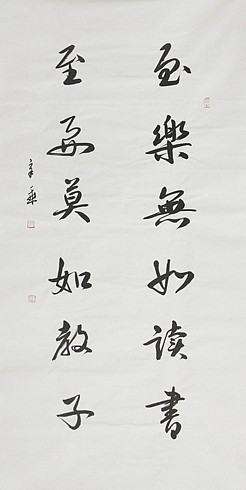 至樂無如读書
至要莫如教子